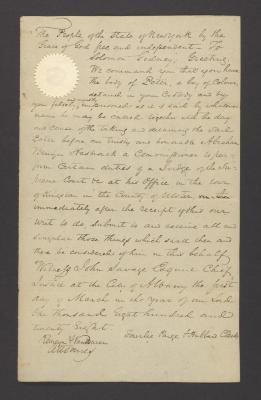 The People of the State of New York by the
Grace of God free and independent - To
Solomon Gedney, Greeting,
We command you that you have
the body of Peter, a boy of Colour
detained in your Custody as
you imprisoned as it is said by whatsoever
name he may be called together with the day
and cause of the taking and detaining the said
Peter before our trusty and honorable Abraham
Bruyn Hasbrouck a Commissioner to per
form Certain duties of a Judge of the Su
preme Court at his Office in the town
of Kingston in the County of Ulster
immediately after the receipt of this our
writ to do submit to and receive all and
singular those things which said then and
there be considered of him in this behalf
Witness John Savage Esquire Chief
Justice at the City of Albany the first
day of March in the year of our Lord
One thousand Eight hundred and
twenty Eight.
Fairlie Paige & Hubbard Clerks
Attorney